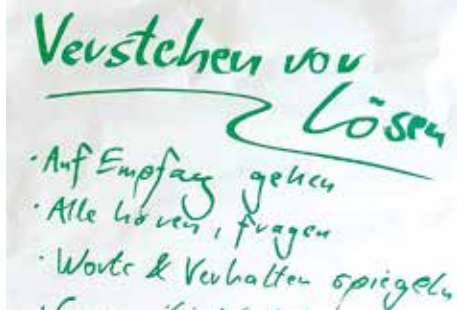 Verstehen vor
Lösen
· Auf Empfang gehen
· Alle hören, fragen
· Worte & Verhalten spiegeln